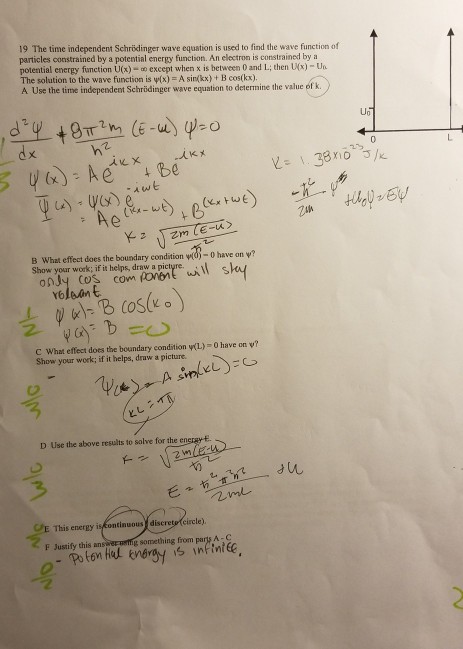 19 The time independent Schrödinger wave equation is used to find the wave function of
particles constrained by a potential energy function. An electron is constrained by a
potential energy function U(x) = ∞ except when x is between 0 and L; then U(x) = U₀.
The solution to the wave function is ψ(x) = A sin(kx) + B cos(kx).
A Use the time independent Schrödinger wave equation to determine the value of k.
U₀
0 L
d²ψ/dx + 8π²m/h² (E-u) ψ=0
K= 1.38x10⁻²³ J/K
ψ(x) = Ae^ikx + Be^-ikx
-ħ²/2m ψ'' +U₀ψ=Eψ
Ψ(x) = ψ(x) e^-iwt
= Ae^(kx-wt) + B^(kx+wt)
K= √2m(E-u)/ħ²
B What effect does the boundary condition ψ(0) = 0 have on ψ?
Show your work; if it helps, draw a picture.
only cos component will stay
relevant
ψ(x)= B cos(k0)
ψ(x)= B =0
1/2
C What effect does the boundary condition ψ(L) = 0 have on ψ?
Show your work; if it helps, draw a picture.
A sin(kL)=0
kL=π
0/3
D Use the above results to solve for the energy E.
K= √2m(E-u)/ħ²
+u
0/3
E This energy is continuous / discrete (circle).
F Justify this answer using something from parts A - C
- Potential energy is infinite.
0/2
2